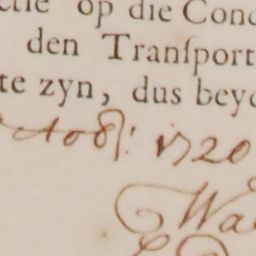 ctie op die Cond
den Tranſport
te zyn, dus beyd
1720
Wa